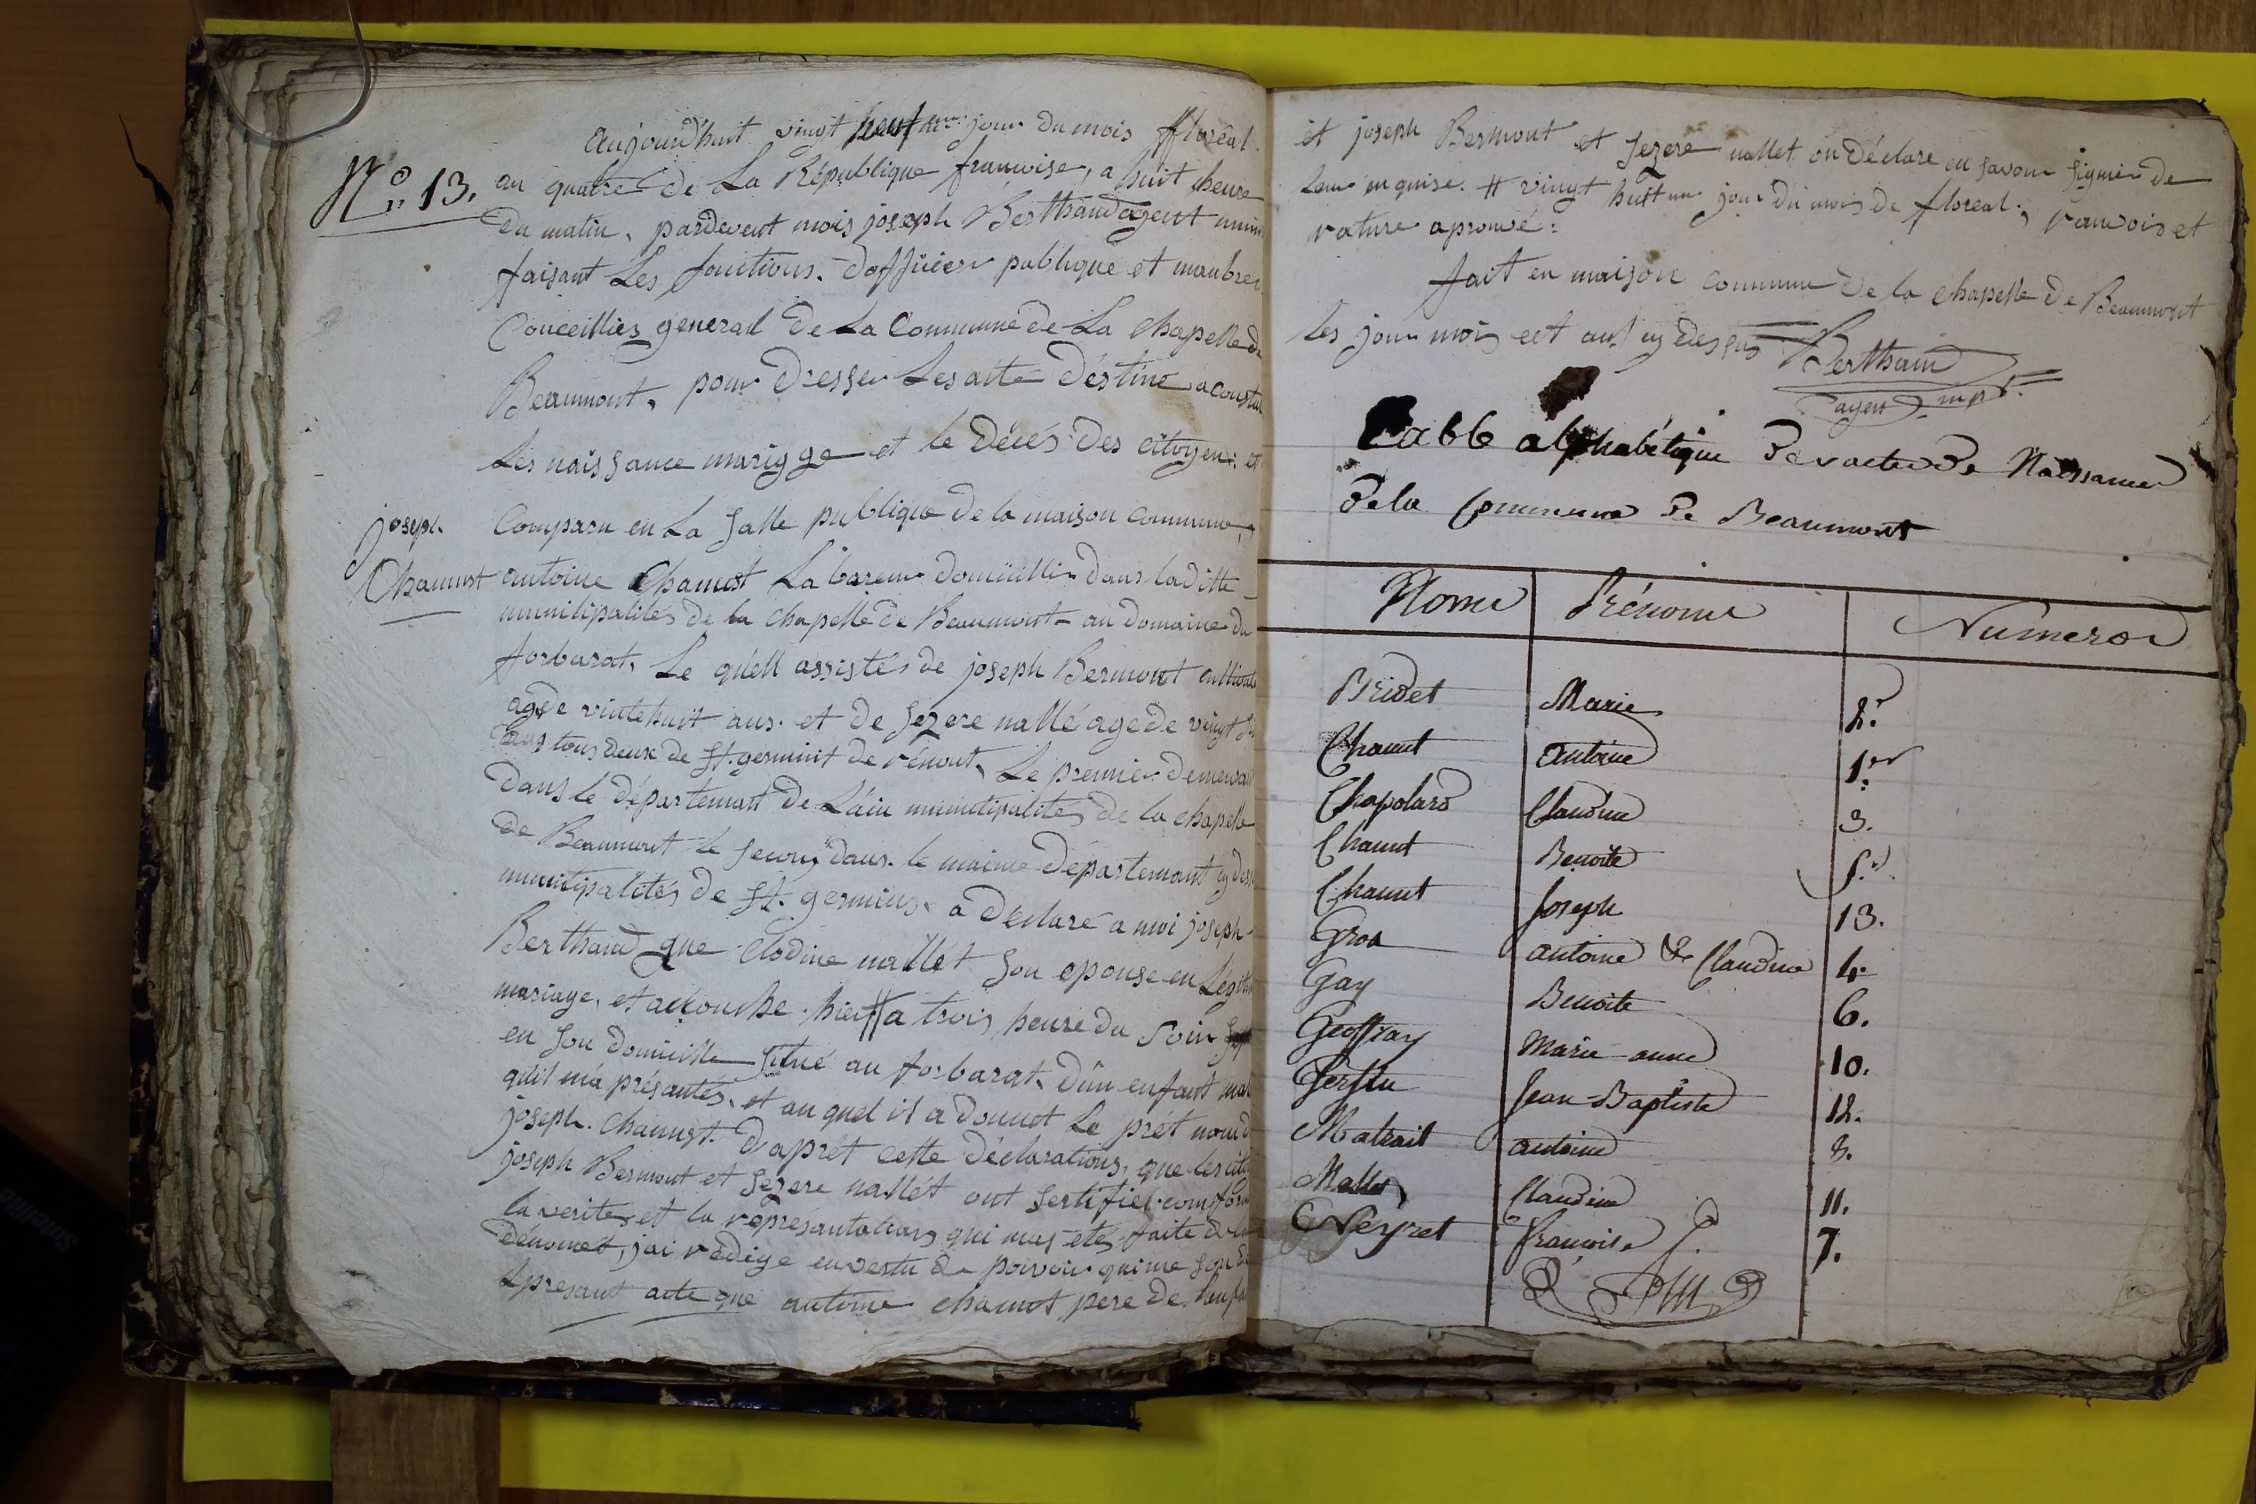 aujourd'huit vingt neuf me jour du mois ffloréal
N° 13. an quatre de La République francoise, a huit heure
du matin, pardevent mois joseph Berthaud agent muni
faisant Les fonctions d'offficier publique et manbre
Conceillies general de La Commune de La Chapelle de
Beaumont, pour dresser Les aite déstiné a constat
Les naissance mariage et le décés des citoyens et
joseph
Comparu en La Salle publique de la maison commune,
Chanust
antoine Chanust La bareur domicillier dans laditte
municipalités de la Chapelle de Beaumont au domaine du
forbarat, Le quell assistés de joseph Bermont
agede vintehuit ans. et de Sezere nallé agede vingt
ans tous deux de St. germint de rénont, Le premier demeurant
dans le département de L'ain municipalités de la chapelle
de Beaumont le second dans le maime départemant cy dess
municipalités de St. germins, a déclaré a moi joseph
Berthaud que Clodine nallét son epouse en Légitim
mariage, et accouche hier # a trois heure du soir
en son domicille situé au forbarat, d'un enfant mal
quil ma présantés, et au quel il a donnet Le prét nom d
joseph. Chanust. D'aprét cette déclarations, que les cit
joseph Bermont et Sezere nallét ont sertifier comfor
la verites et la représantations qui mas etés faite de
dénomet, jai rédige en vertu de povoir qui me son d
Lpresant acte que antoine chanust pere de Lenfa
et joseph Bermont et Sezere nallet on déclare en savoir signier de
leur en quise. # vingt huit me jour du mois de floreal,
rature aprouvé:
fait en maison commune de la chapelle de Beaumont
les jour mois eet an cy dessus Berthaud
agent mpl.
Table alphabétique des actes de Naissances
de la Commune de Beaumont
Noms Prénoms Numeros
Bridet Marie 2.
Chanut antoine 1.er
Chapolard Claudine 3.
Chanut Benoite 5.
Chanut Joseph 13.
Gros antoine & Claudine 4.
Gay Benoite 6.
Geoffray Marie anne 10.
Jean-Baptiste 12.
Matrait antoine 8.
Mallet Claudine 11.
Neyret francoise 7.